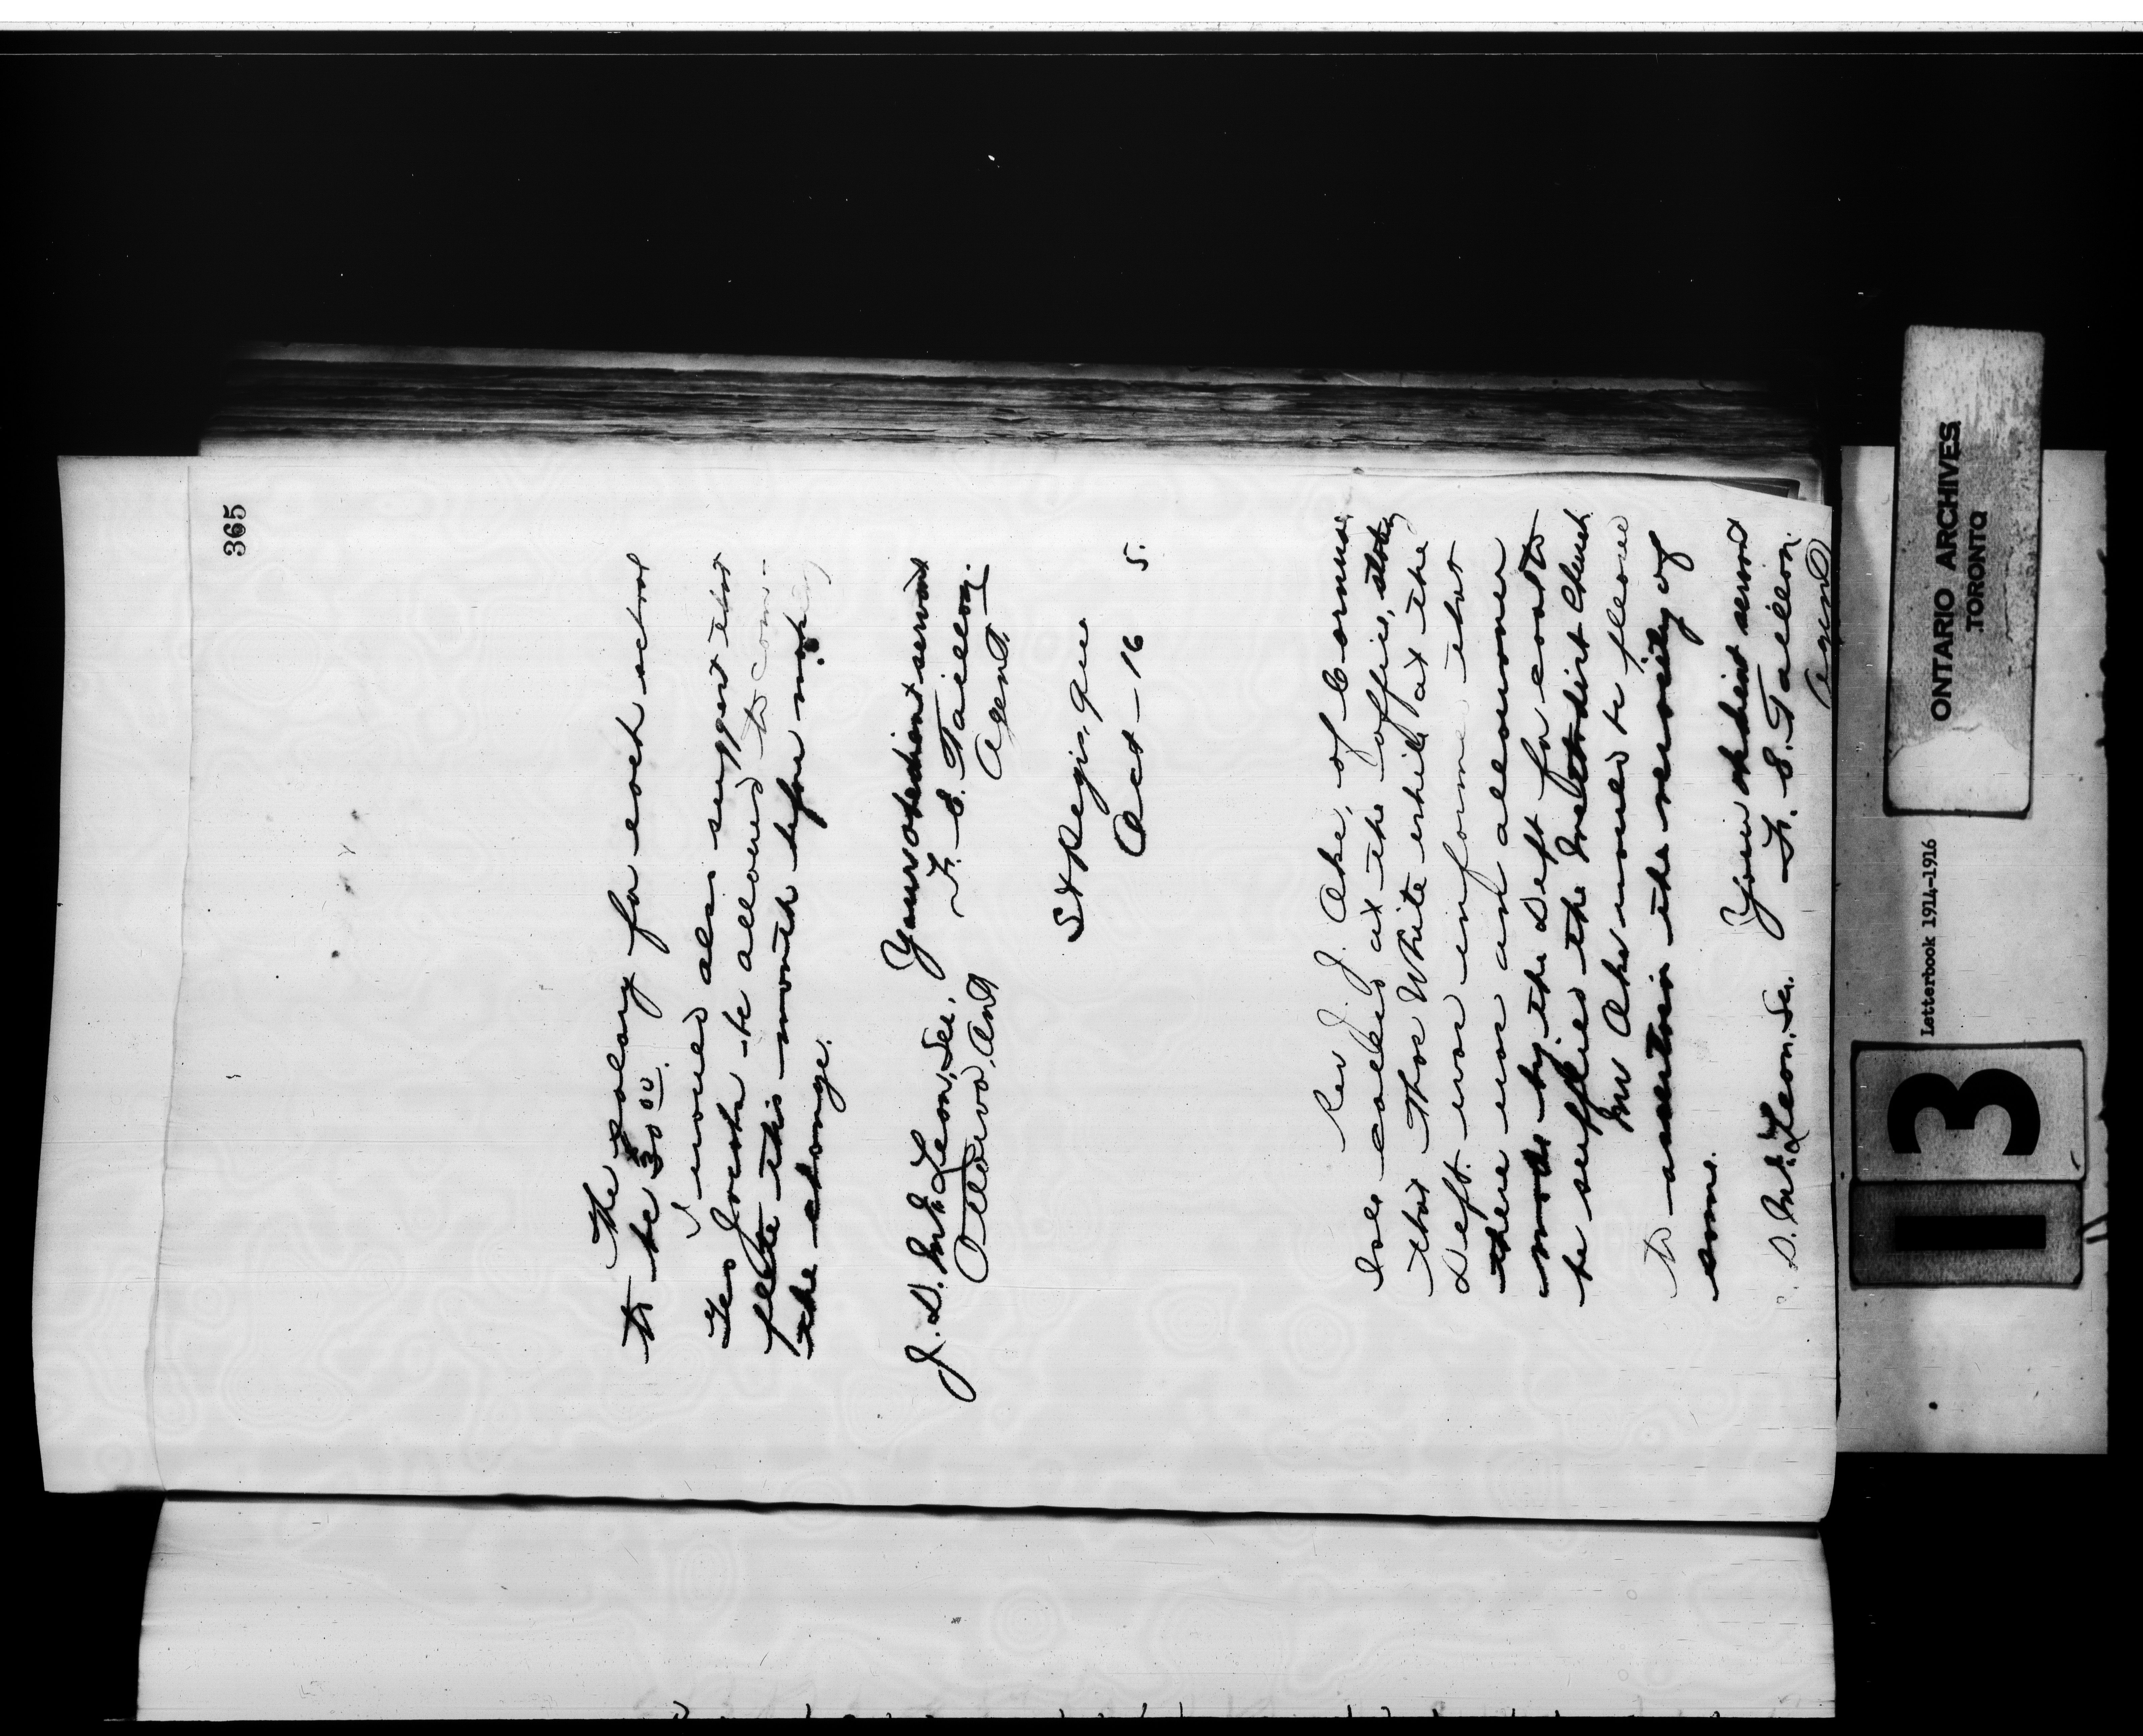 365
The salary for each school
to be 30 00.
I would also suggest that
Leo Jocota be allowed to com-
plete this month before making
the change.
Yours obedient servant
J. D. McLean, Sec, F. E. Taillon,
Ottawa, Ont Agent.
St Regis, Que
Oct - 16 5.
Rev J. Ake, of Cornwall
has called at the office, stating
that Thos White while at the
Dept. was informed that
there was an allowance
made by the Dept for coal to
be supplied the Methodist Church
Mr Ake would be pleased
to ascertain the necessity of
same.
Your obedient servant
D. McLean, Sec. F. E. Taillon.
Agent
ONTARIO ARCHIVES
TORONTO
Letterbook 1914-1916
I 3